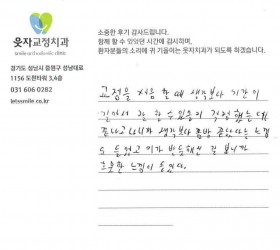 웃자교정치과
경기도 성남시 중원구 성남대로
1156 도현타워 3,4층
031 606 0282
letssmile.co.kr
소중한 후기 감사드립니다.
함께 할 수 있었던 시간에 감사하며,
환자분들의 소리에 귀 기울이는 웃자치과가 되도록 하겠습니다.
교정을 처음 할 때 생각보다 기간이
길어서 잘 할 수 있을지 걱정했는데
끝나고 나니까 생각보다 금방 끝났다는 느낌
도 들었고 이가 반듯해진 걸 보니까
흐뭇한 느낌이 들었다.